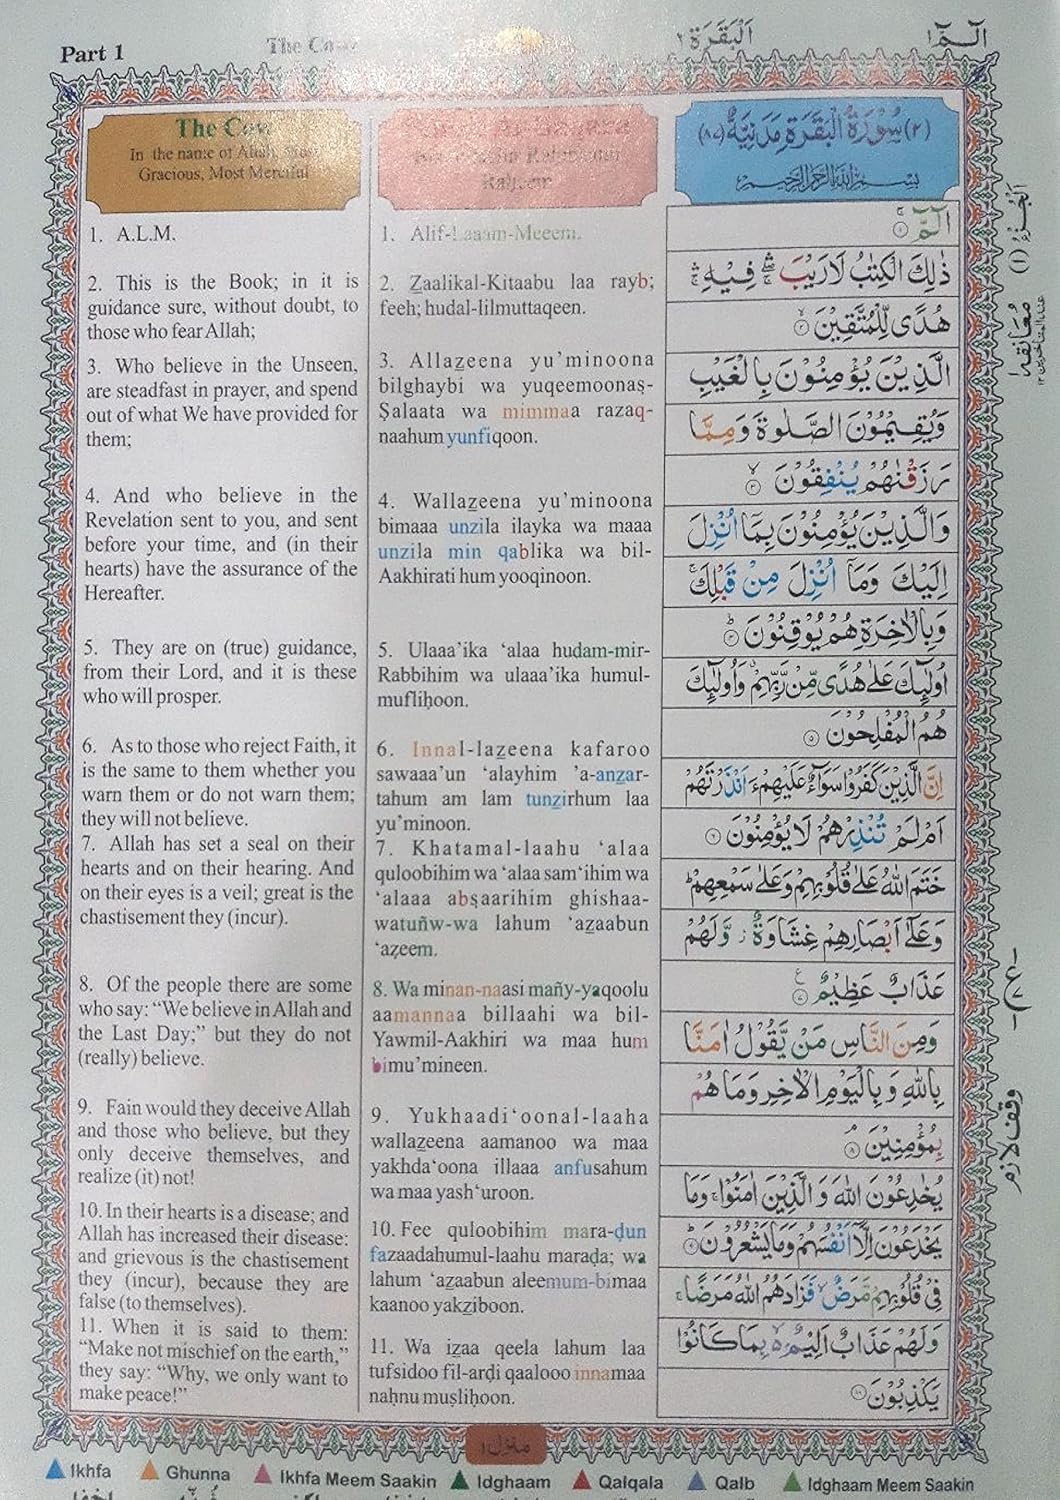 Part 1
The Cow
اَلْبَقَرَة ٢
الٓمّٓ ١
The Cow
In the name of Allah, Most
Gracious, Most Merciful
1. A.L.M.
2. This is the Book; in it is
guidance sure, without doubt, to
those who fear Allah;
3. Who believe in the Unseen,
are steadfast in prayer, and spend
out of what We have provided for
them;
4. And who believe in the
Revelation sent to you, and sent
before your time, and (in their
hearts) have the assurance of the
Hereafter.
5. They are on (true) guidance,
from their Lord, and it is these
who will prosper.
6. As to those who reject Faith, it
is the same to them whether you
warn them or do not warn them;
they will not believe.
7. Allah has set a seal on their
hearts and on their hearing. And
on their eyes is a veil; great is the
chastisement they (incur).
8. Of the people there are some
who say: “We believe in Allah and
the Last Day;” but they do not
(really) believe.
9. Fain would they deceive Allah
and those who believe, but they
only deceive themselves, and
realize (it) not!
10. In their hearts is a disease; and
Allah has increased their disease:
and grievous is the chastisement
they (incur), because they are
false (to themselves).
11. When it is said to them:
“Make not mischief on the earth,”
they say: “Why, we only want to
make peace!”
Raheem
1. Alif-Laaam-Meeem.
2. Z̲aalikal-Kitaabu laa rayb;
feeh; hudal-lilmuttaqeen.
3. Allaz̲eena yu’minoona
bilghaybi wa yuqeemoonaṣ-
Ṣalaata wa mimmaa razaq-
naahum yunfiqoon.
4. Wallaz̲eena yu’minoona
bimaaa unzila ilayka wa maaa
unzila min qablika wa bil-
Aakhirati hum yooqinoon.
5. Ulaaa’ika ‘alaa hudam-mir-
Rabbihim wa ulaaa’ika humul-
mufliḥoon.
6. Innal-laz̲eena kafaroo
sawaaa’un ‘alayhim ’a-anz̲ar-
tahum am lam tunz̲irhum laa
yu’minoon.
7. Khatamal-laahu ‘alaa
quloobihim wa ‘alaa sam‘ihim wa
‘alaaa abṣaarihim ghishaa-
watuñw-wa lahum ‘az̲aabun
‘aẓeem.
8. Wa minan-naasi mañy-yaqoolu
aamannaa billaahi wa bil-
Yawmil-Aakhiri wa maa hum
bimu’mineen.
9. Yukhaadi‘oonal-laaha
wallaz̲eena aamanoo wa maa
yakhda‘oona illaaa anfusahum
wa maa yash‘uroon.
10. Fee quloobihim mara-ḍun
fazaadahumul-laahu maraḍa; wa
lahum ‘az̲aabun aleemum-bimaa
kaanoo yakz̲iboon.
11. Wa iz̲aa qeela lahum laa
tufsidoo fil-arḍi qaalooo innamaa
naḥnu muṣliḥoon.
(٢) سُوْرَةُ الْبَقَرَةِ مَدَنِيَّةٌ (٨٧)
بِسْمِ اللهِ الرَّحْمٰنِ الرَّحِيْمِ
الٓمّٓ ۚ ١
ذٰلِكَ الْكِتٰبُ لَا رَيْبَ ۛ فِيْهِ ۛ
هُدًى لِّلْمُتَّقِيْنَ ۙ ٢
الَّذِيْنَ يُؤْمِنُوْنَ بِالْغَيْبِ
وَيُقِيْمُوْنَ الصَّلٰوةَ وَمِمَّا
رَزَقْنٰهُمْ يُنْفِقُوْنَ ۙ ٣
وَالَّذِيْنَ يُؤْمِنُوْنَ بِمَآ اُنْزِلَ
اِلَيْكَ وَمَآ اُنْزِلَ مِنْ قَبْلِكَ ۚ
وَبِالْاٰخِرَةِ هُمْ يُوْقِنُوْنَ ؕ ٤
اُولٰٓئِكَ عَلٰى هُدًى مِّنْ رَّبِّهِمْ ۙ وَاُولٰٓئِكَ
هُمُ الْمُفْلِحُوْنَ ٥
اِنَّ الَّذِيْنَ كَفَرُوْا سَوَآءٌ عَلَيْهِمْ ءَاَنْذَرْتَهُمْ
اَمْ لَمْ تُنْذِرْهُمْ لَا يُؤْمِنُوْنَ ٦
خَتَمَ اللهُ عَلٰى قُلُوْبِهِمْ وَعَلٰى سَمْعِهِمْ ؕ
وَعَلٰٓى اَبْصَارِهِمْ غِشَاوَةٌ ز وَّلَهُمْ
عَذَابٌ عَظِيْمٌ ٧
وَمِنَ النَّاسِ مَنْ يَّقُوْلُ اٰمَنَّا
بِاللهِ وَبِالْيَوْمِ الْاٰخِرِ وَمَا هُمْ
بِمُؤْمِنِيْنَ ۘ ٨
يُخٰدِعُوْنَ اللهَ وَالَّذِيْنَ اٰمَنُوْا ۚ وَمَا
يَخْدَعُوْنَ اِلَّآ اَنْفُسَهُمْ وَمَا يَشْعُرُوْنَ ؕ ٩
فِيْ قُلُوْبِهِمْ مَّرَضٌ ۙ فَزَادَهُمُ اللهُ مَرَضًا ۚ
وَلَهُمْ عَذَابٌ اَلِيْمٌۢ ۙ۬ بِمَا كَانُوْا
يَكْذِبُوْنَ ١٠
اَلْجُزْءُ (١)
معانقة ١
ع
وقف لازم
منزل ١
Ikhfa
Ghunna
Ikhfa Meem Saakin
Idghaam
Qalqala
Qalb
Idghaam Meem Saakin